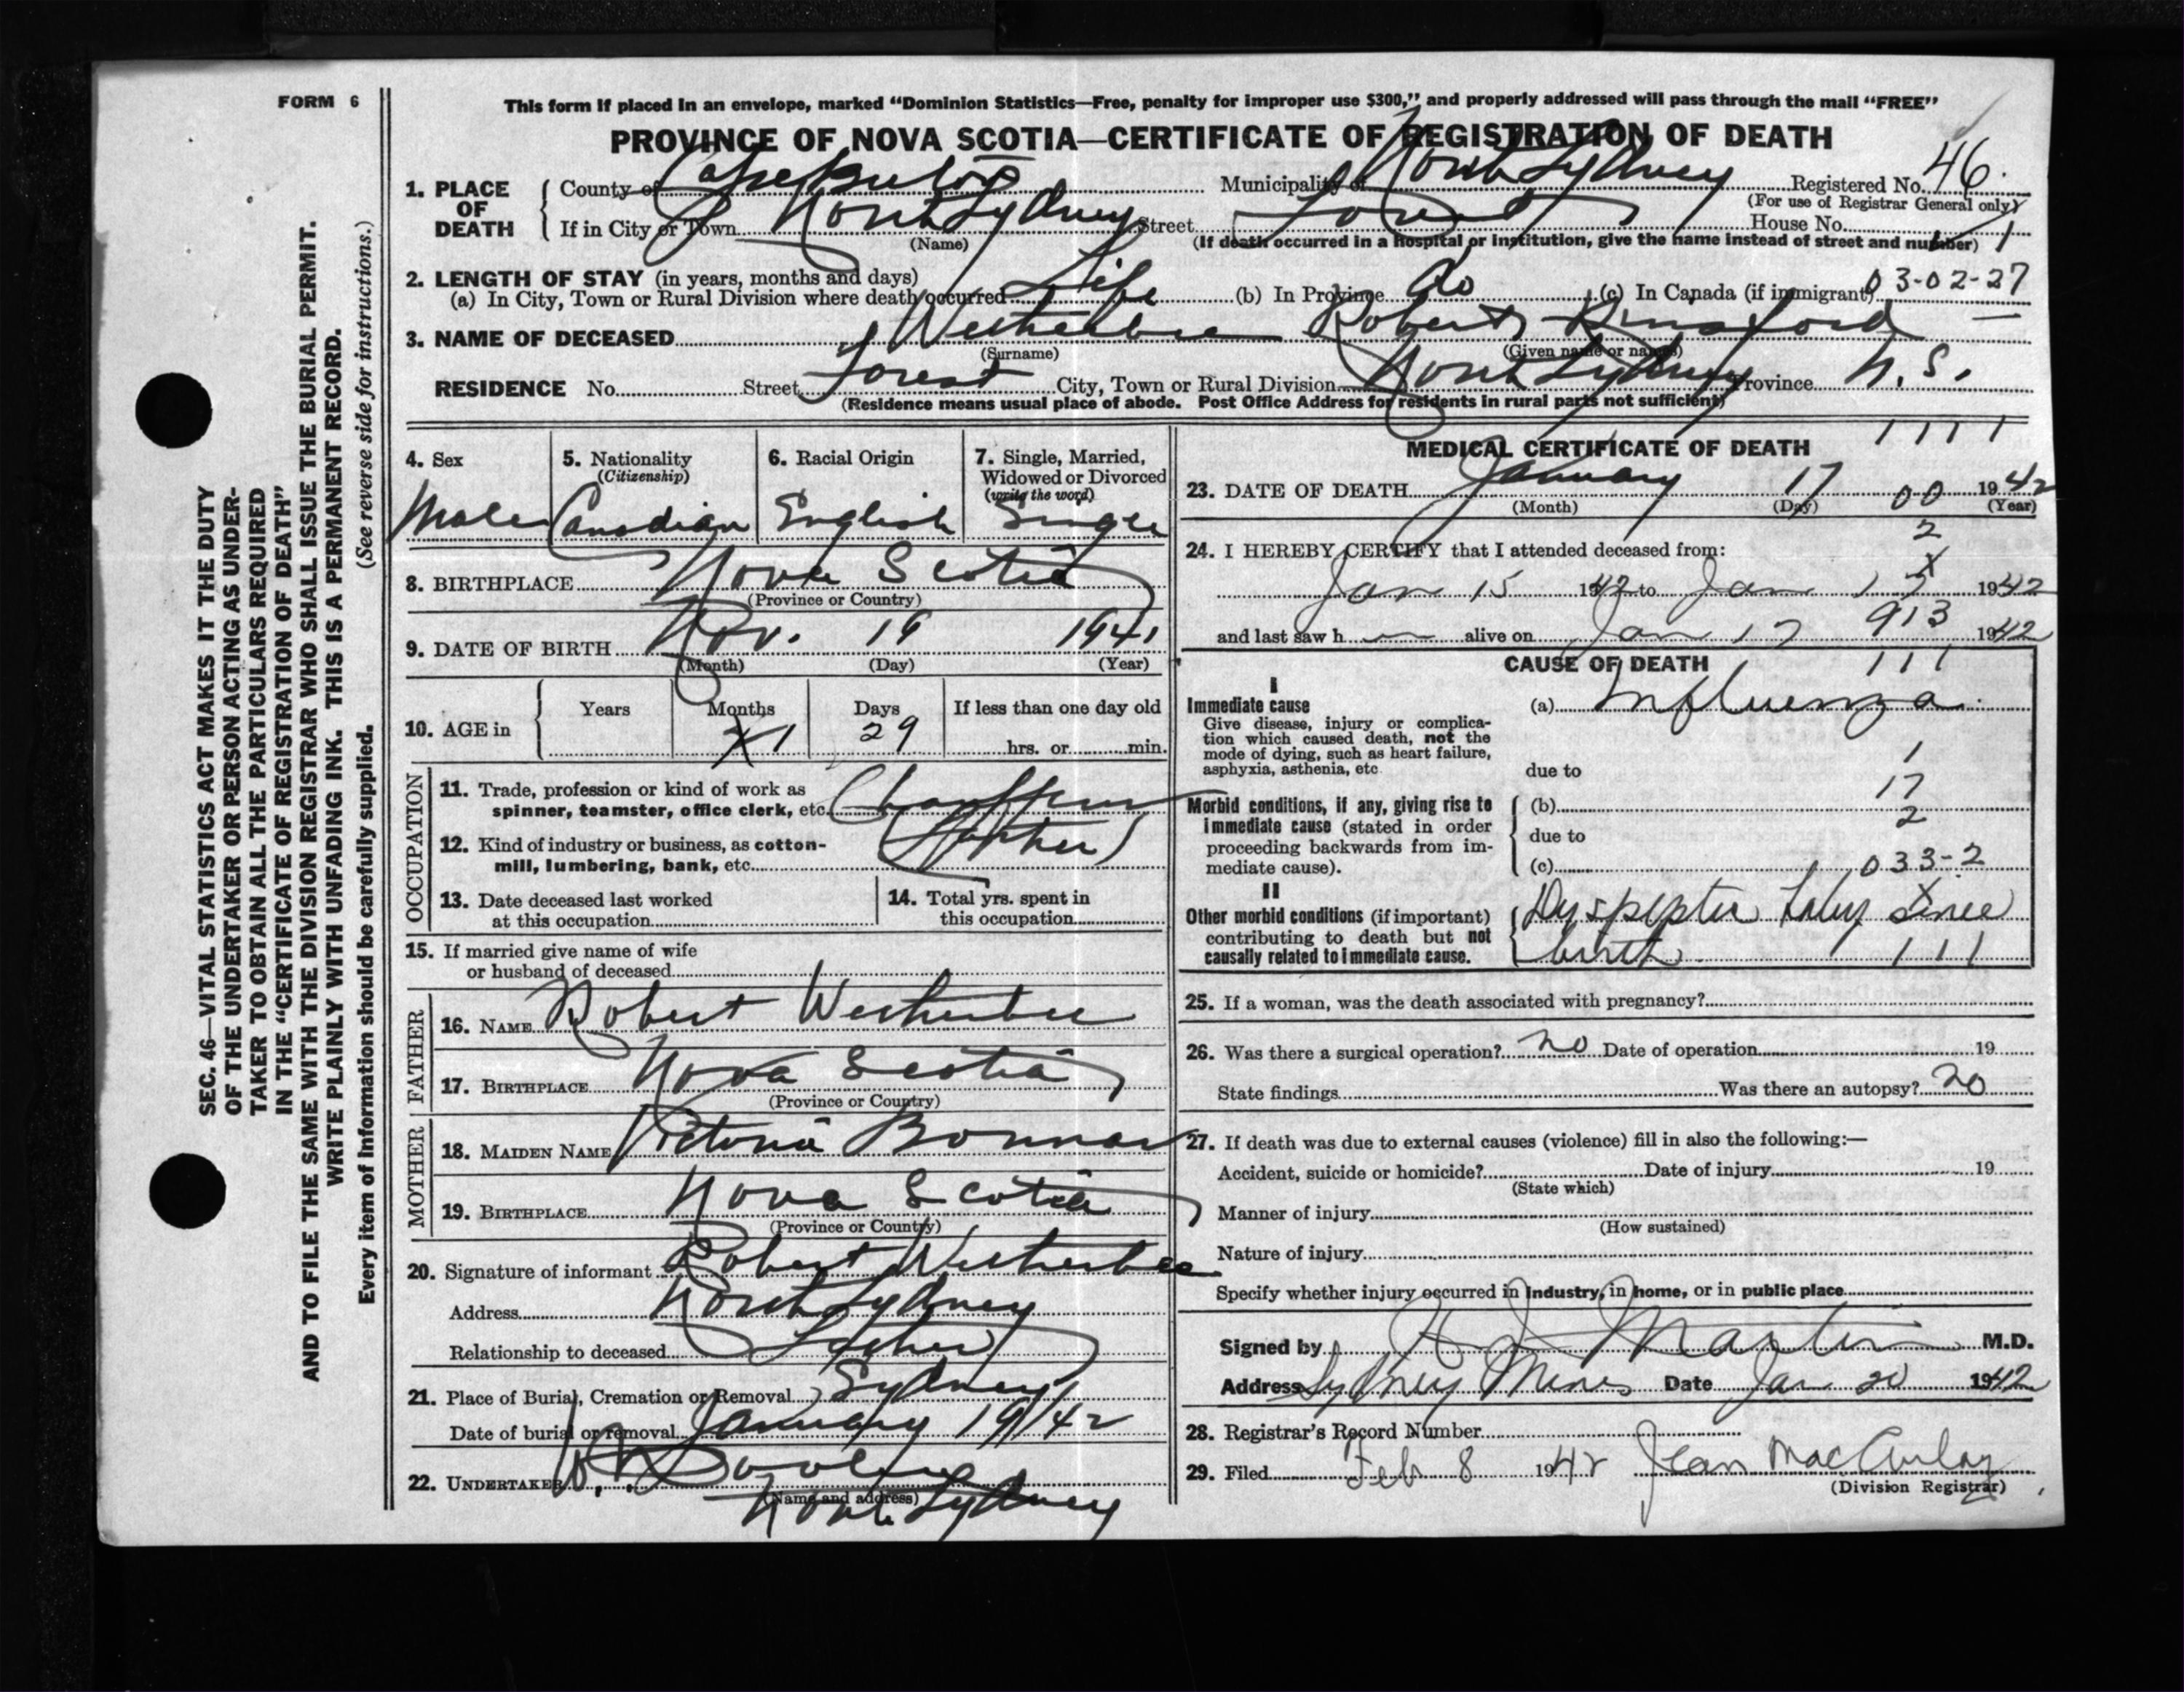 FORM 6
This form if placed in an envelope, marked “Dominion Statistics—Free, penalty for improper use $300,” and properly addressed will pass through the mail “FREE”
PROVINCE OF NOVA SCOTIA—CERTIFICATE OF REGISTRATION OF DEATH
1. PLACE OF DEATH
County of Cape Breton Municipality of North Sydney Registered No. 46.
(For use of Registrar General only)
If in City or Town North Sydney Street Forest House No.
(Name) (If death occurred in a hospital or institution, give the name instead of street and number) 1
2. LENGTH OF STAY (in years, months and days)
(a) In City, Town or Rural Division where death occurred Life (b) In Province do (c) In Canada (if immigrant) 03-02-27
3. NAME OF DECEASED Wetherbee Robert
(Surname) (Given name or names)
RESIDENCE No. Street Forest City, Town or Rural Division North Sydney Province N.S.
(Residence means usual place of abode. Post Office Address for residents in rural parts not sufficient)
4. Sex 5. Nationality (Citizenship) 6. Racial Origin 7. Single, Married, Widowed or Divorced (write the word)
Male Canadian English Single
8. BIRTHPLACE Nova Scotia
(Province or Country)
9. DATE OF BIRTH Nov. 19 1941
(Month) (Day) (Year)
10. AGE in Years Months Days If less than one day old
1 29 hrs. or min.
OCCUPATION
11. Trade, profession or kind of work as
spinner, teamster, office clerk, etc. Chauffeur
12. Kind of industry or business, as cotton- (Father)
mill, lumbering, bank, etc.
13. Date deceased last worked
at this occupation
14. Total yrs. spent in
this occupation
15. If married give name of wife
or husband of deceased
FATHER
16. NAME Robert Wetherbee
17. BIRTHPLACE Nova Scotia
(Province or Country)
MOTHER
18. MAIDEN NAME Victoria Bonnar
19. BIRTHPLACE Nova Scotia
(Province or Country)
20. Signature of informant Robert Wetherbee
Address North Sydney
Relationship to deceased Father
21. Place of Burial, Cremation or Removal Sydney
Date of burial or removal January 19/42
22. UNDERTAKER
(Name and address)
North Sydney
MEDICAL CERTIFICATE OF DEATH 1111
23. DATE OF DEATH January 17 00 1942
(Month) (Day) (Year)
2
24. I HEREBY CERTIFY that I attended deceased from:
X
Jan 15 1942 to Jan 17 1942
913
and last saw h alive on Jan 17 1942
CAUSE OF DEATH 111
I
Immediate cause (a) Influenza
Give disease, injury or complica-
tion which caused death, not the
mode of dying, such as heart failure,
asphyxia, asthenia, etc
1
due to
17
Morbid conditions, if any, giving rise to (b)
immediate cause (stated in order 2
proceeding backwards from im- due to
mediate cause). (c) 033-2
II
Other morbid conditions (if important)
contributing to death but not
causally related to immediate cause.
Dyspeptic baby since
birth 111
25. If a woman, was the death associated with pregnancy?
26. Was there a surgical operation? no Date of operation 19
State findings Was there an autopsy? no
27. If death was due to external causes (violence) fill in also the following:—
Accident, suicide or homicide? Date of injury 19
(State which)
Manner of injury
(How sustained)
Nature of injury
Specify whether injury occurred in industry, in home, or in public place
Signed by Martin M.D.
Address Sydney Mines Date Jan 20 1942
28. Registrar's Record Number
29. Filed Feb 8 1942 Jean MacAulay
(Division Registrar)
SEC. 46—VITAL STATISTICS ACT MAKES IT THE DUTY
OF THE UNDERTAKER OR PERSON ACTING AS UNDER-
TAKER TO OBTAIN ALL THE PARTICULARS REQUIRED
IN THE “CERTIFICATE OF REGISTRATION OF DEATH”
AND TO FILE THE SAME WITH THE DIVISION REGISTRAR WHO SHALL ISSUE THE BURIAL PERMIT.
WRITE PLAINLY WITH UNFADING INK. THIS IS A PERMANENT RECORD.
Every item of information should be carefully supplied. (See reverse side for instructions.)